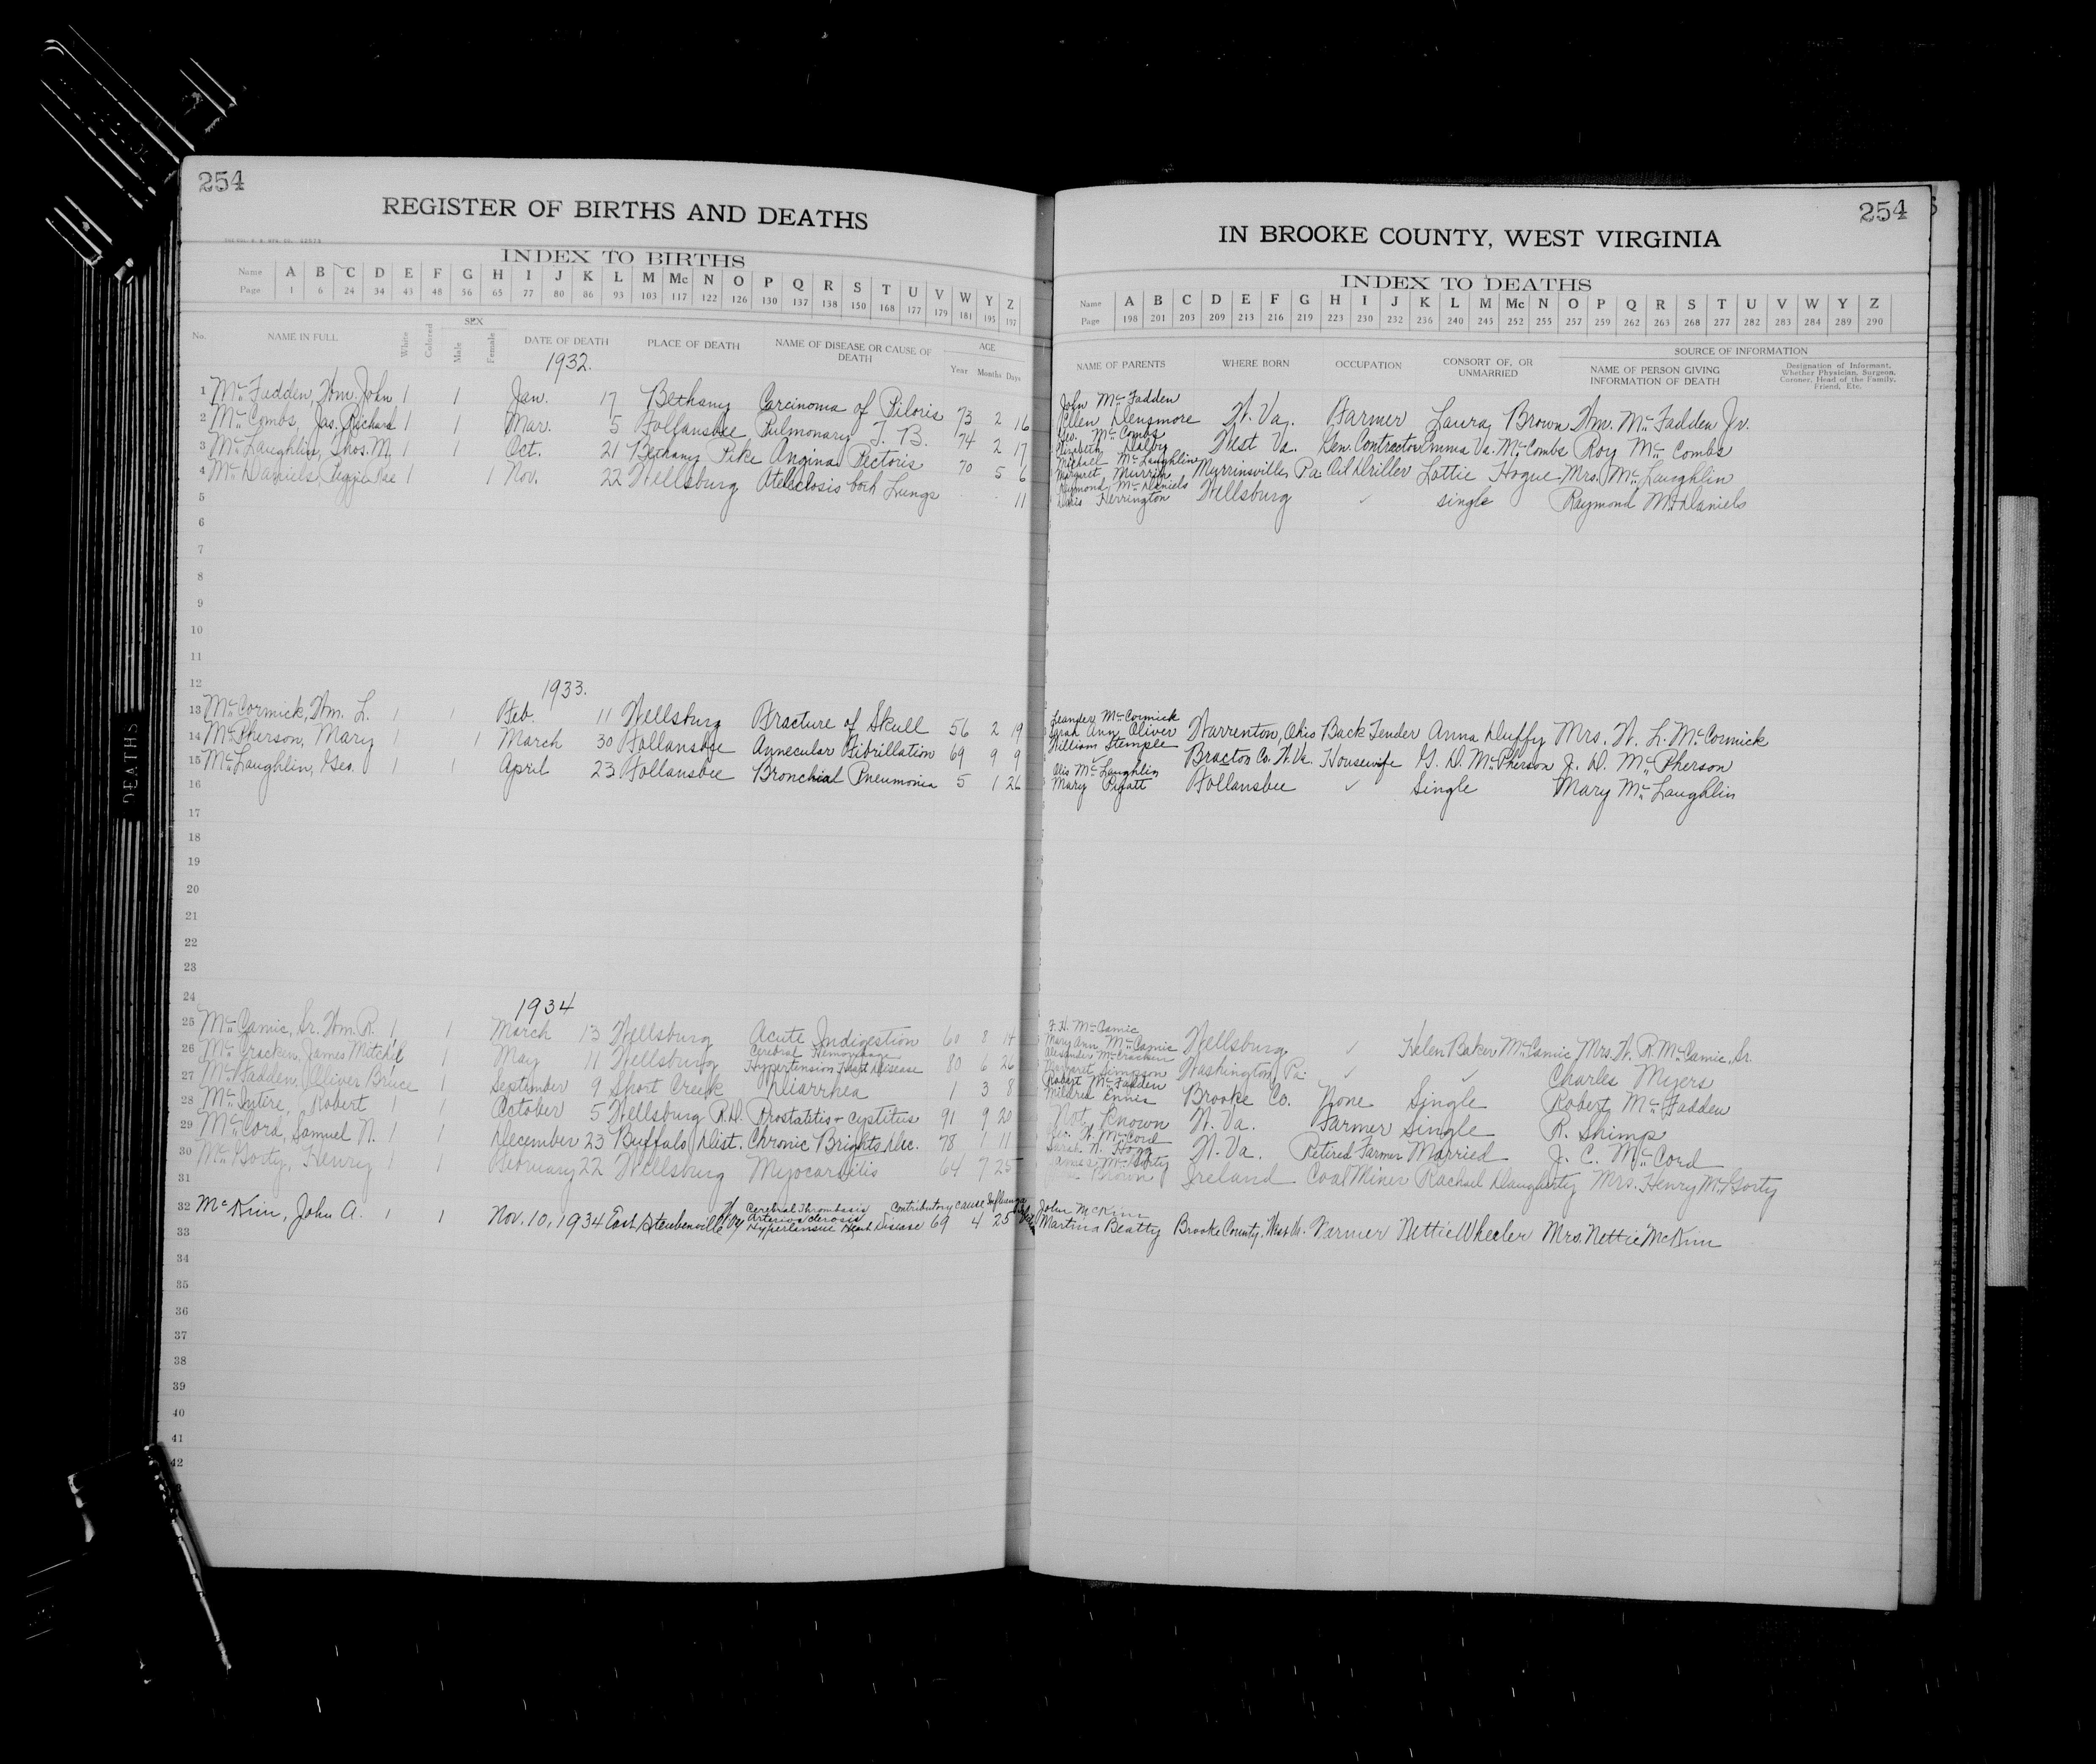 254
REGISTER OF BIRTHS AND DEATHS
INDEX TO BIRTHS
Name A B C D E F G H I J K L M Mc N O P Q R S T U V W Y Z
Page 1 6 24 34 43 48 56 65 77 80 86 93 103 117 122 126 130 137 138 150 168 177 179 181 195 197
No. NAME IN FULL White Colored SEX Male Female DATE OF DEATH PLACE OF DEATH NAME OF DISEASE OR CAUSE OF DEATH AGE Year Months Days
1932.
1 Mc Fadden, Wm. John 1 1 Jan. 17 Bethany Carcinoma of Piloris 73 2 16
2 Mc Combs, Jas. Richard 1 1 Mar. 5 Follansbee Pulmonary T. B. 74 2 17
3 Mc Laughlin, Thos. M. 1 1 Oct. 21 Bethany Pike Angina Pectoris 70 5 6
4 Mc Daniels, Peggie Rae 1 1 Nov. 22 Wellsburg Atelectosis both Lungs 11
5
6
7
8
9
10
11
12 1933.
13 Mc Cormick, Wm. L. 1 1 Feb. 11 Wellsburg Fracture of Skull 56 2 19
14 Mc Pherson, Mary 1 1 March 30 Follansbee Aunecular Fibrillation 69 9 9
15 Mc Laughlin, Geo. 1 1 April 23 Follansbee Bronchial Pneumonia 5 1 26
16
17
18
19
20
21
22
23
24 1934
25 Mc Camic, Sr. Wm. R. 1 1 March 13 Wellsburg Acute Indigestion 60 8 14
26 Mc Cracken, James Mitchel 1 1 May 11 Wellsburg Cerebral Hemorrhage Hypertension Heart Disease 80 6 26
27 Mc Fadden, Oliver Bruce 1 1 September 9 Short Creek Diarrhea 1 3 8
28 Mc Intire, Robert 1 1 October 5 Wellsburg R.D. Prostatitis + cystitus 91 9 20
29 Mc Cord, Samuel N. 1 1 December 23 Buffalo Dist. Chronic Brights Dec. 78 1 11
30 Mc Gorty, Henry 1 1 February 22 Wellsburg Myocarditis 64 7 25
31
32 McKim, John A. 1 1 Nov. 10, 1934 East Steubenville W Va Cerebral Thrombosis Arterio sclerosis Hypertensive Heart Disease Contributory cause Influenza 69 4 25
33
34
35
36
37
38
39
40
41
42
DEATHS
254
IN BROOKE COUNTY, WEST VIRGINIA
INDEX TO DEATHS
Name A B C D E F G H I J K L M Mc N O P Q R S T U V W Y Z
Page 198 201 203 209 213 216 219 223 230 232 236 240 245 252 255 257 259 262 263 268 277 282 283 284 289 290
NAME OF PARENTS WHERE BORN OCCUPATION CONSORT OF, OR UNMARRIED SOURCE OF INFORMATION NAME OF PERSON GIVING INFORMATION OF DEATH Designation of Informant, Whether Physician, Surgeon, Coroner, Head of the Family, Friend, Etc.
John Mc Fadden
Ellen Densmore W. Va. Farmer Laura Brown Wm. Mc Fadden Jr.
Geo. Mc Combs
Elizabeth Dalby West Va. Gen. Contractor Emma Va. Mc Combs Roy Mc Combs
Michall Mc Laughline
Margaret Murrin Murrinsville, Pa Oil Driller Lottie Hogue Mrs. Mc Laughlin
Raymond Mc Daniels
Doris Herrington Wellsburg ✓ single Raymond McDaniels
Leander Mc Cormick
Sarah Ann Oliver Warrenton, Ohio Back Tender Anna Duffy Mrs. W. L. Mc Cormick
William Stemple
✓ Braxton Co. W. Va. Housewife G. D. McPherson J. D. Mc Pherson
Otis Mc Laughlin
Mary Pyatt Follansbee ✓ Single Mary Mc Laughlin
F. H. Mc Camic
Mary Ann Mc Camic Wellsburg ✓ Helen Baker Mc Camic Mrs. W. R. Mc Camic, Sr.
Alexander McCracken
Margaret Simpson Washington, Pa. ✓ ✓ Charles Myers
Robert Mc Fadden
Mildred Ennis Brooke Co. None Single Robert Mc Fadden
Not Known W. Va. Farmer Single R. Shimp
Geo. W. McCord
Sarah N. Hogg W. Va. Retired Farmer Married J. C. Mc Cord
James McGorty
Brown Ireland Coal Miner Rachael Daugherty Mrs. Henry McGorty
John McKim
Martina Beatty Brooke County, West Va. Farmer Nettie Wheeler Mrs. Nettie McKim